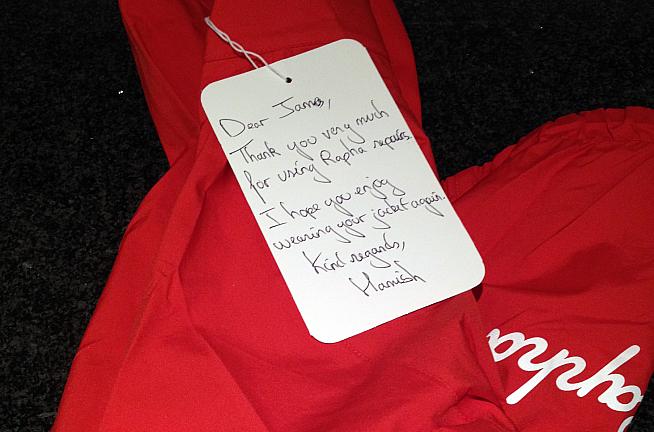 Dear James,
Thank you very much
for using Rapha repairs.
I hope you enjoy
wearing your jacket again.
Kind regards,
Hamish
Rapha